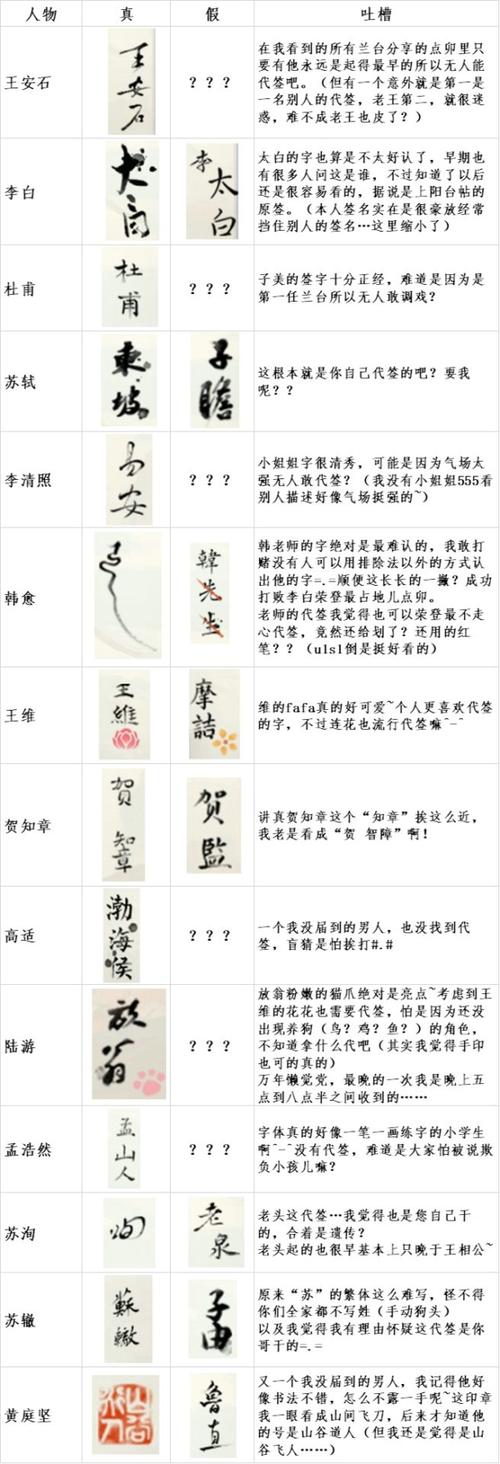 人物 真 假 吐槽
王安石
王安石
？？？
在我看到的所有兰台分享的点卯里只
要有他永远是起得最早的所以无人能
代签吧。（但有一个意外就是第一是
一名别人的代签，老王第二，就很迷
惑，难不成老王也皮了？）
李白
李太白
太白的字也算是不太好认了，早期也
有很多人问这是谁，不过知道了以后
还是很容易看的，据说是上阳台帖的
原签。（本人签名实在是很豪放经常
挡住别人的签名…这里缩小了）
杜甫
杜甫
？？？
子美的签字十分正经，难道是因为是
第一任兰台所以无人敢调戏？
苏轼
東坡
子瞻
这根本就是你自己代签的吧？要我
呢？？
李清照
易安
？？？
小姐姐字很清秀，可能是因为气场太
强无人敢代签？（我没有小姐姐555看
别人描述好像气场挺强的~）
韩愈
韓先生
韩老师的字绝对是最难认的，我敢打
赌没有人可以用排除法以外的方式认
出他的字=.=顺便这长长的一撇？成功
打败李白荣登最占地儿点卯。
老师的代签我觉得也可以荣登最不走
心代签，竟然还给划了？还用的红
笔？？（ulsl倒是挺好看的）
王维
王維
摩詰
维的fafa真的好可爱~个人更喜欢代签
的字，不过连花也流行代签嘛^-^
贺知章
賀知章
賀監
讲真贺知章这个“知章”挨这么近，
我老是看成“贺 智障”啊！
高适
渤海侯
？？？
一个我没届到的男人，也没找到代
签，盲猜是怕挨打#.#
陆游
放翁
？？？
放翁粉嫩的猫爪绝对是亮点~考虑到王
维的花花也需要代签，怕是因为还没
出现养狗（鸟？鸡？鱼？）的角色，
不知道拿什么代吧（其实我觉得手印
也可的真的）
万年懒觉党，最晚的一次我是晚上五
点到八点半之间收到的……
孟浩然
孟山人
？？？
字体真的好像一笔一画练字的小学生
啊^-^没有代签，难道是大家怕被说欺
负小孩儿嘛？
苏洵
洵
老泉
老头这代签…我觉得也是您自己干
的，合着是遗传？
老头起的也很早基本上只晚于王相公~
苏辙
蘇轍
子由
原来“苏”的繁体这么难写，怪不得
你们全家都不写姓（手动狗头）
以及我觉得我有理由怀疑这代签是你
哥干的=.=
黄庭坚
魯直
又一个我没届到的男人，我记得他好
像书法不错，怎么不露一手呢~这印章
我一眼看成山间飞刀，后来才知道他
的号是山谷道人（但我还是觉得是山
谷飞人……）